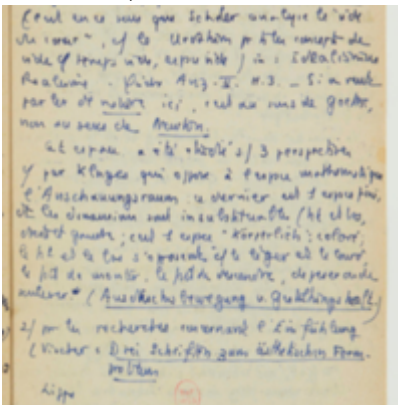 C'est en ce sens que Scheler analyse le "vide
du cœur", cf le                 concept de
vide (temps vide, espace vide) in : Idealismus
Realismus - Philos Anz. II. H.3. _ Si on veut
parler de nature ici, c'est au sens de Goethe,
non au sens de Newton.
Cet espace a été étudié s/ 3 perspectives
1/ par Klages qui oppose à l'espace mathématique
l'Anschauungsraum : ce dernier est 1 espace
et les dimensions sont insubstituables (ht et bas,
droit et gauche ; c'est 1 espace "körperlich" ; coloré,
le ht et le bas s'opposent cf le léger et le lourd
le fait de monter, le fait de descendre,
           (Ausdrucksbewegung u. Gestaltungskraft)
2/ par les recherches concernant l'Einfühlung
(Vischer : Drei Schriften zum ästhetischen Form-
problem
Lipps